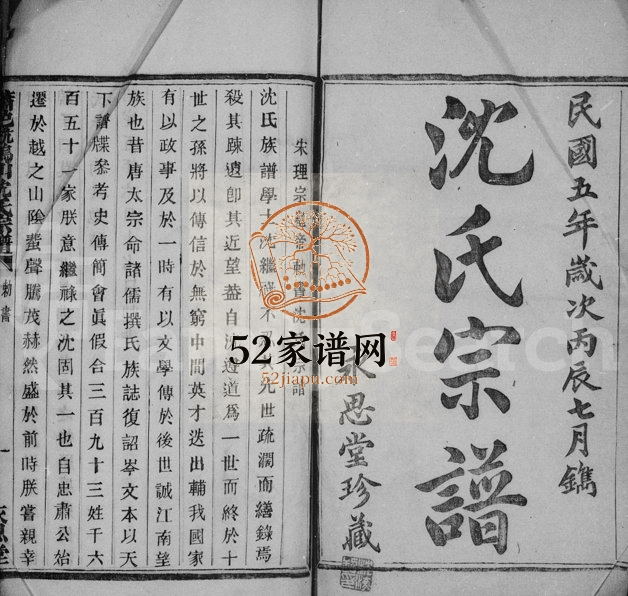 民國五年歲次丙辰七月鐫
沈氏宗譜
永思堂珍藏
宋理宗皇帝勅書沈氏宗譜
沈氏族譜學士沈繼
九世疏濶而繕錄焉
殺其踈遺卽其近望葢自沈遵道爲一世而終於十
世之孫將以傳信於無窮中間英才迭出輔我國家
有以政事及於一時有以文學傳於後世誠江南望
族也昔唐太宗命諸儒撰氏族誌復詔岑文本以天
下譜牒參考史傳簡會眞假合三百九十三姓千六
百五十一家朕意繼祿之沈固其一也自忠肅公始
遷於越之山陰蜚聲騰茂赫然盛於前時朕嘗親幸
勅書
一
52家谱网
52jiapu.com